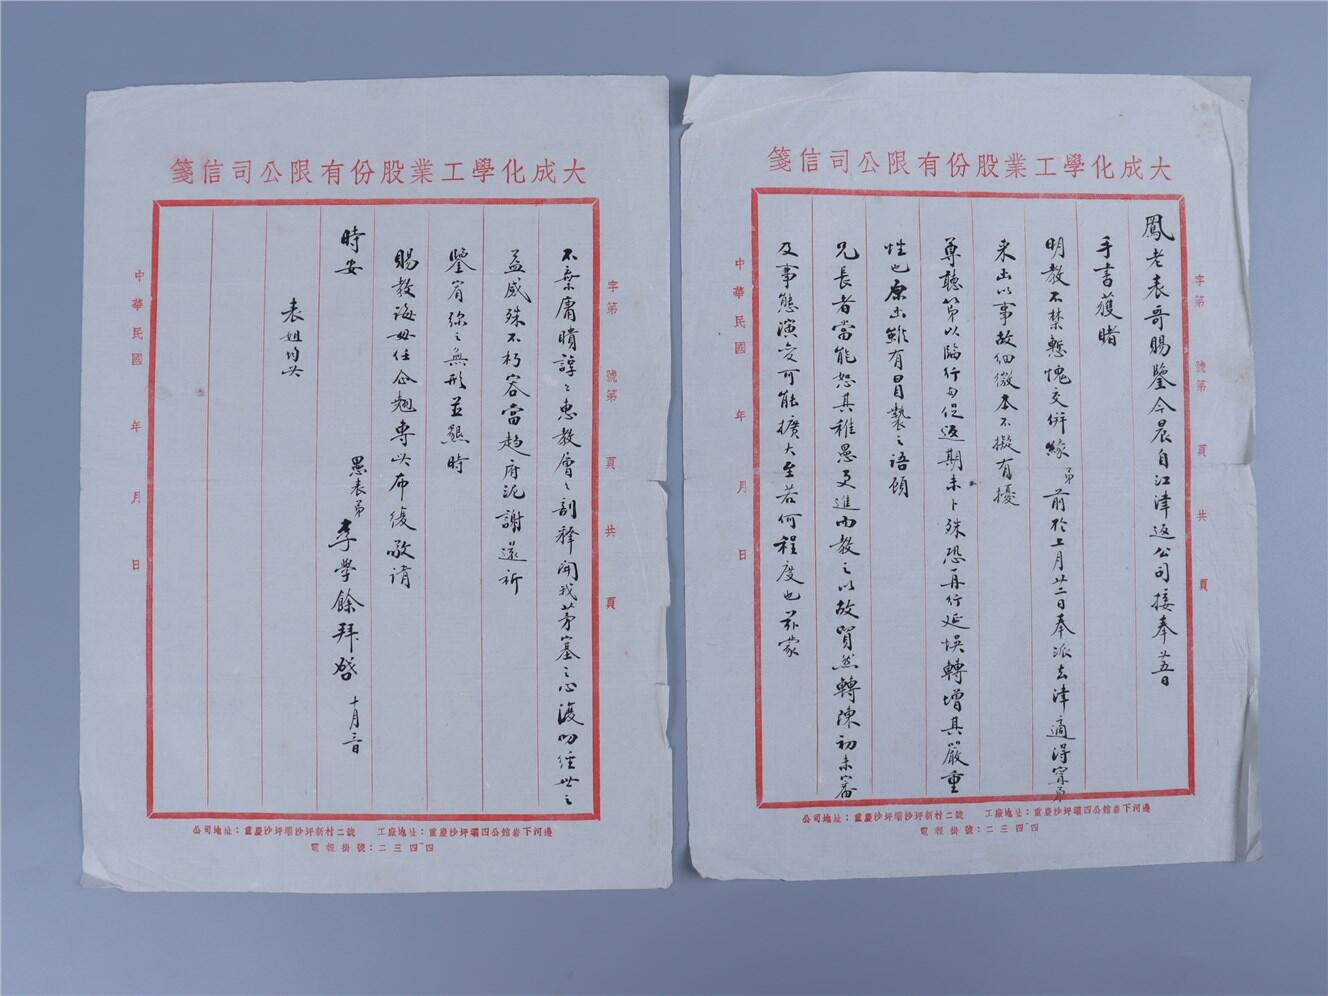 大成化學工業股份有限公司信箋
字第 號第 頁共 頁
鳳老表哥賜鑒今晨自江津返公司接奉廿五日
手書獲睹
明教不禁慙愧交併緣弟前於上月廿二日奉派去津適得甯弟
來出以事故細微本不擬有擾
尊聽第以臨行匆促返期未卜殊恐再行延悞轉增其嚴重
性也原出雖有冒褻之語頎
兄長者當能恕其稚愚更進而教之以故貿然轉陳初未審
及事態演變可能擴大至若何程度也茲蒙
中華民國 年 月 日
公司地址：重慶沙坪壩沙坪新村二號 工廠地址：重慶沙坪壩四公館岩下河邊
電報掛號：二三四四
大成化學工業股份有限公司信箋
字第 號第 頁共 頁
不棄庸瞶諄諄惠教層層剖釋開我茅塞之心復叨經世之
益感殊不朽容當趨府泥謝還祈
鑒宥弥之無形並懇時
賜教誨毋任企翹專此布復敬請
時安
愚表弟李學餘拜啓 十月 日
表姐均此
中華民國 年 月 日
公司地址：重慶沙坪壩沙坪新村二號 工廠地址：重慶沙坪壩四公館岩下河邊
電報掛號：二三四四